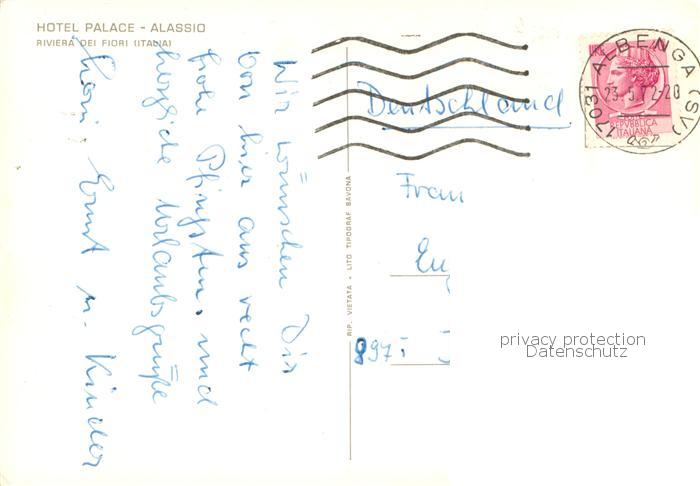 HOTEL PALACE - ALASSIO
RIVIERA DEI FIORI (ITALIA)
Wir wünschen Dir
von hier aus recht
frohe Pfingsten, und
herzliche Urlaubsgrüße
Ernst u. Kinder
RIP. VIETATA - LITO TIPOGRAF SAVONA
17031 ALBENGA (SV)
23-5-72-20
REPVBBLICA
ITALIANA
Deutschland
Frau
Eu
897
privacy protection
Datenschutz